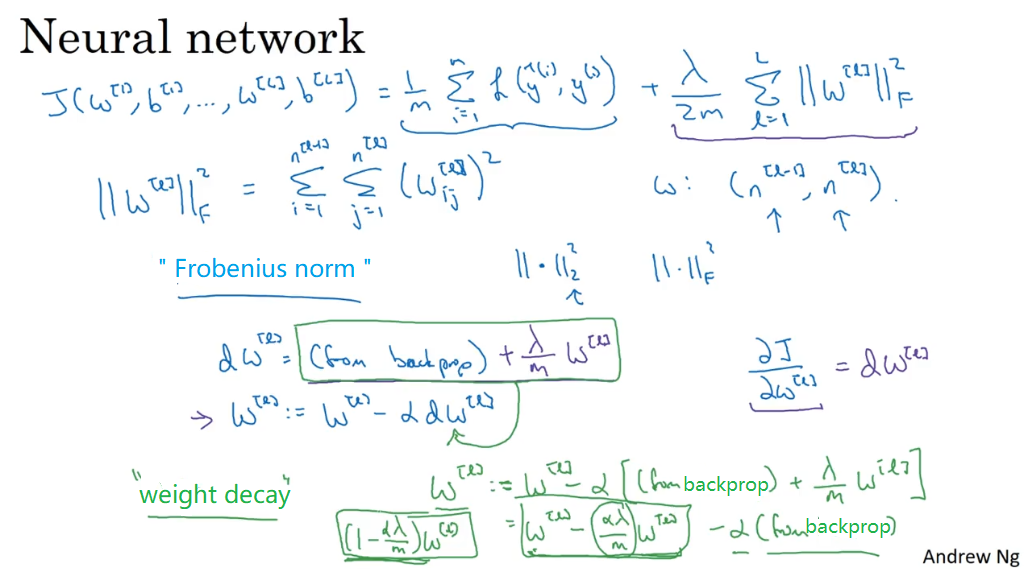 Neural network
J(w^[1], b^[1], ..., w^[L], b^[L]) = 1/m ∑_{i=1}^{n} L(ŷ^(i), y^(i)) + λ/2m ∑_{l=1}^{L} ||w^[l]||_F^2
||w^[l]||_F^2 = ∑_{i=1}^{n^[l-1]} ∑_{j=1}^{n^[l]} (w_ij^[l])^2 w: (n^[l-1], n^[l]).
" Frobenius norm " ||·||_2^2 ||·||_F^2
dw^[l] = (from backprop) + λ/m w^[l] ∂J/∂w^[l] = dw^[l]
→ w^[l] := w^[l] - α dw^[l]
"weight decay" w^[l] := w^[l] - α [(from backprop) + λ/m w^[l]]
(1 - αλ/m) w^[l] = w^[l] - αλ/m w^[l] - α (from backprop)
Andrew Ng